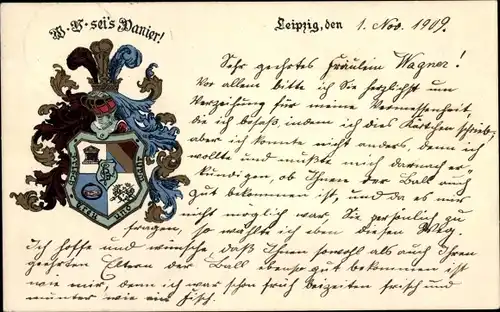 W. V. sei's Panier!
Leipzig, den 1. Nov. 1909.
Sehr geehrtes Fräulein Wagner!
Vor allem bitte ich Sie herzlichst um
Verzeihung für meine Vermessenheit,
die ich besaß indem ich dies Kärtchen schrieb;
aber ich konnte nicht anders, denn ich
wollte und mußte mich darnach er-
kundigen, ob Ihnen der Ball auch
gut bekommen ist, und da es mir
nicht möglich war, Sie persönlich zu
fragen, so wählte ich eben diesen Weg.
Ich hoffe und wünsche, daß Ihnen sowohl als auch Ihren
geehrten Eltern der Ball ebenso gut bekommen ist
wie mir, denn ich war schon früh beizeiten frisch und
munter wie ein Fisch.
UND